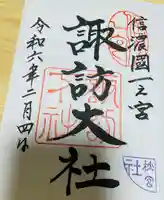 信濃國一之宮
諏訪大社
令和六年二月四日
秋宮
社